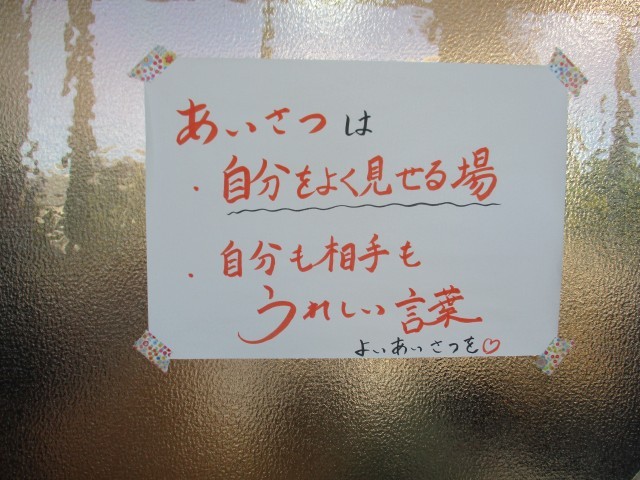 あいさつは
・自分をよく見せる場
・自分も相手も
うれしい言葉
よいあいさつを♡